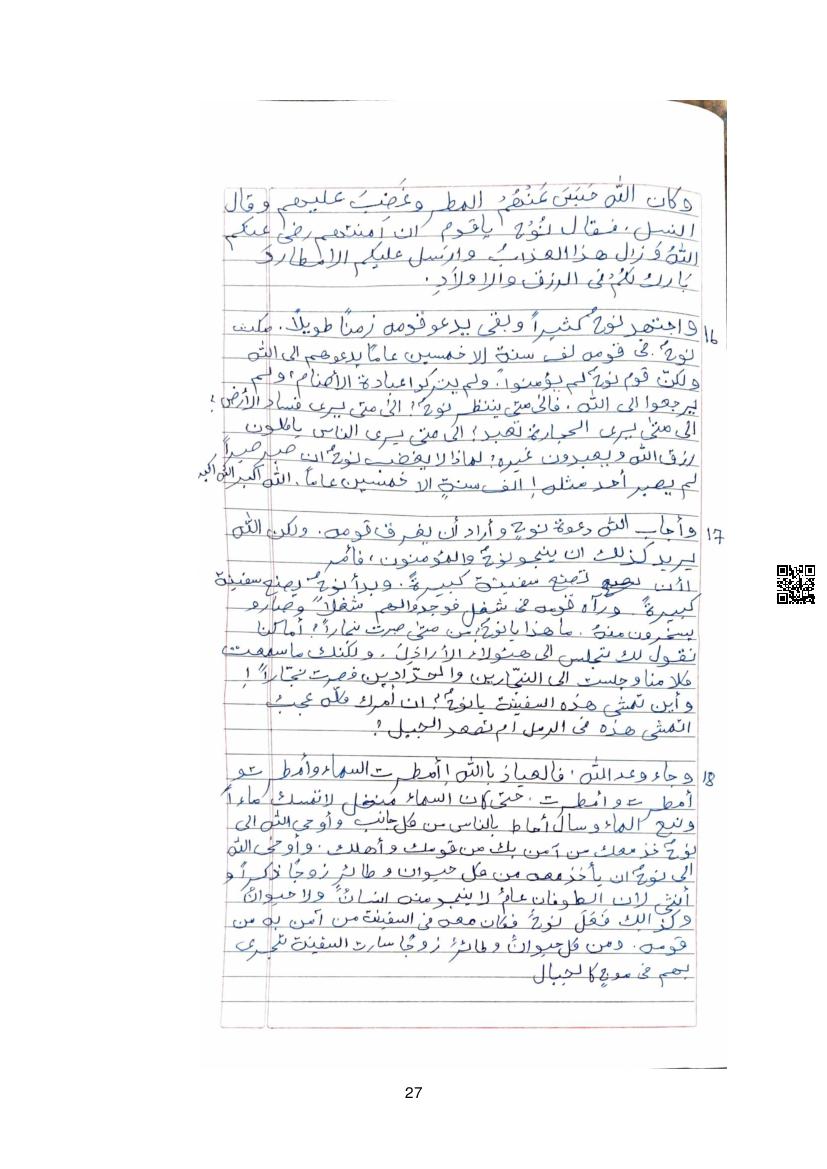 وكان الله حَبَسَ عَنْهُمْ المطر وغَضِبَ عليهم وقال
النسل، فقال نُوْحٌ ياقوم ان آمنتهم رضي عنكم
اللهُ وَزال هذا العذابُ وارسل عليكم الامطار وَ
بَارك لكُمْ في الرزق والاولادِ.
16 واجتهد نوحٌ كثيراً وبقي يدعو قومه زمناً طويلاً. مكث
نوحٌ في قومه لف سنة الا خمسين عاماً يدعوهم الى الله
ولكن قوم نوحٌ لم يؤمنوا. ولم يتركوا عبادة الأصنام، ولم
يرجعوا الى الله. فالى متى ينتظر نوحٌ؟ الى متى يرى فساد الأرض؟
الى متى يرى الحجارة تعبد؟ الى متى يرى الناس يأكلون
رزق الله ويعبدون غيره؟ لماذا لا يغضب نوحٌ ان صبر صبراً
لم يصبر أحد مثله! الف سنةٍ الا خمسين عاماً. الله اكبر الله اكبر
17 وأجاب الله دعوة نوحٍ وأراد أن يغرق قومه. ولكن الله
يريد كذلك ان ينجو نوحٌ والمؤمنون، فأمر
لأن تصنع سفينة كبيرةً. وبدأ نوحٌ يصنع سفينة
كبيرةً ورآه قومه في شغل فوجدوا لهم شغلاً وصارو
يسخرون منهُ. ما هذا يا نوحٌ؛ من متى صرت نجاراً؟ أما كنا
نقول لك تجلس الى هئولاء الأراذِلِ. ولكنك ما سمعت
كلامنا وجلست الى النجّارين والحدّادين فصرت نجّاراً!
وأين تمشي هذه السفينة يا نوحٌ؟ ان أمرك كله عجبٌ
اتمشي هذه في الرمل أم تصعد الجبل؟
18 وجاء وعد الله، فالعياذ باالله! أمطرت السماء وأمطرت و
أمطرت وأمطرت. حتى كان السماءُ منخل لا تمسك ماءاً
ونبع الماء وسال أحاط بالناس من كل جانب وأوحى الله الى
نوحٌ خذ معك من آمن بك من قومك وأهلك. وأوحَى الله
الى نوحٌ ان يأخذ معه من كل حيوان وطائرٍ زوجًا ذكراً و
أنثى لان الطوفان عامٌ لا ينجو منه انسانٌ ولا حيوانٌ
وكذالك فَعَلَ نوحٌ فكان معه في السفينة من آمن به من
قومه. ومن كل حيوانٌ وطائرٌ زوجًا سارت السفينة تجري
بهم في موجٍ كالجبال
27